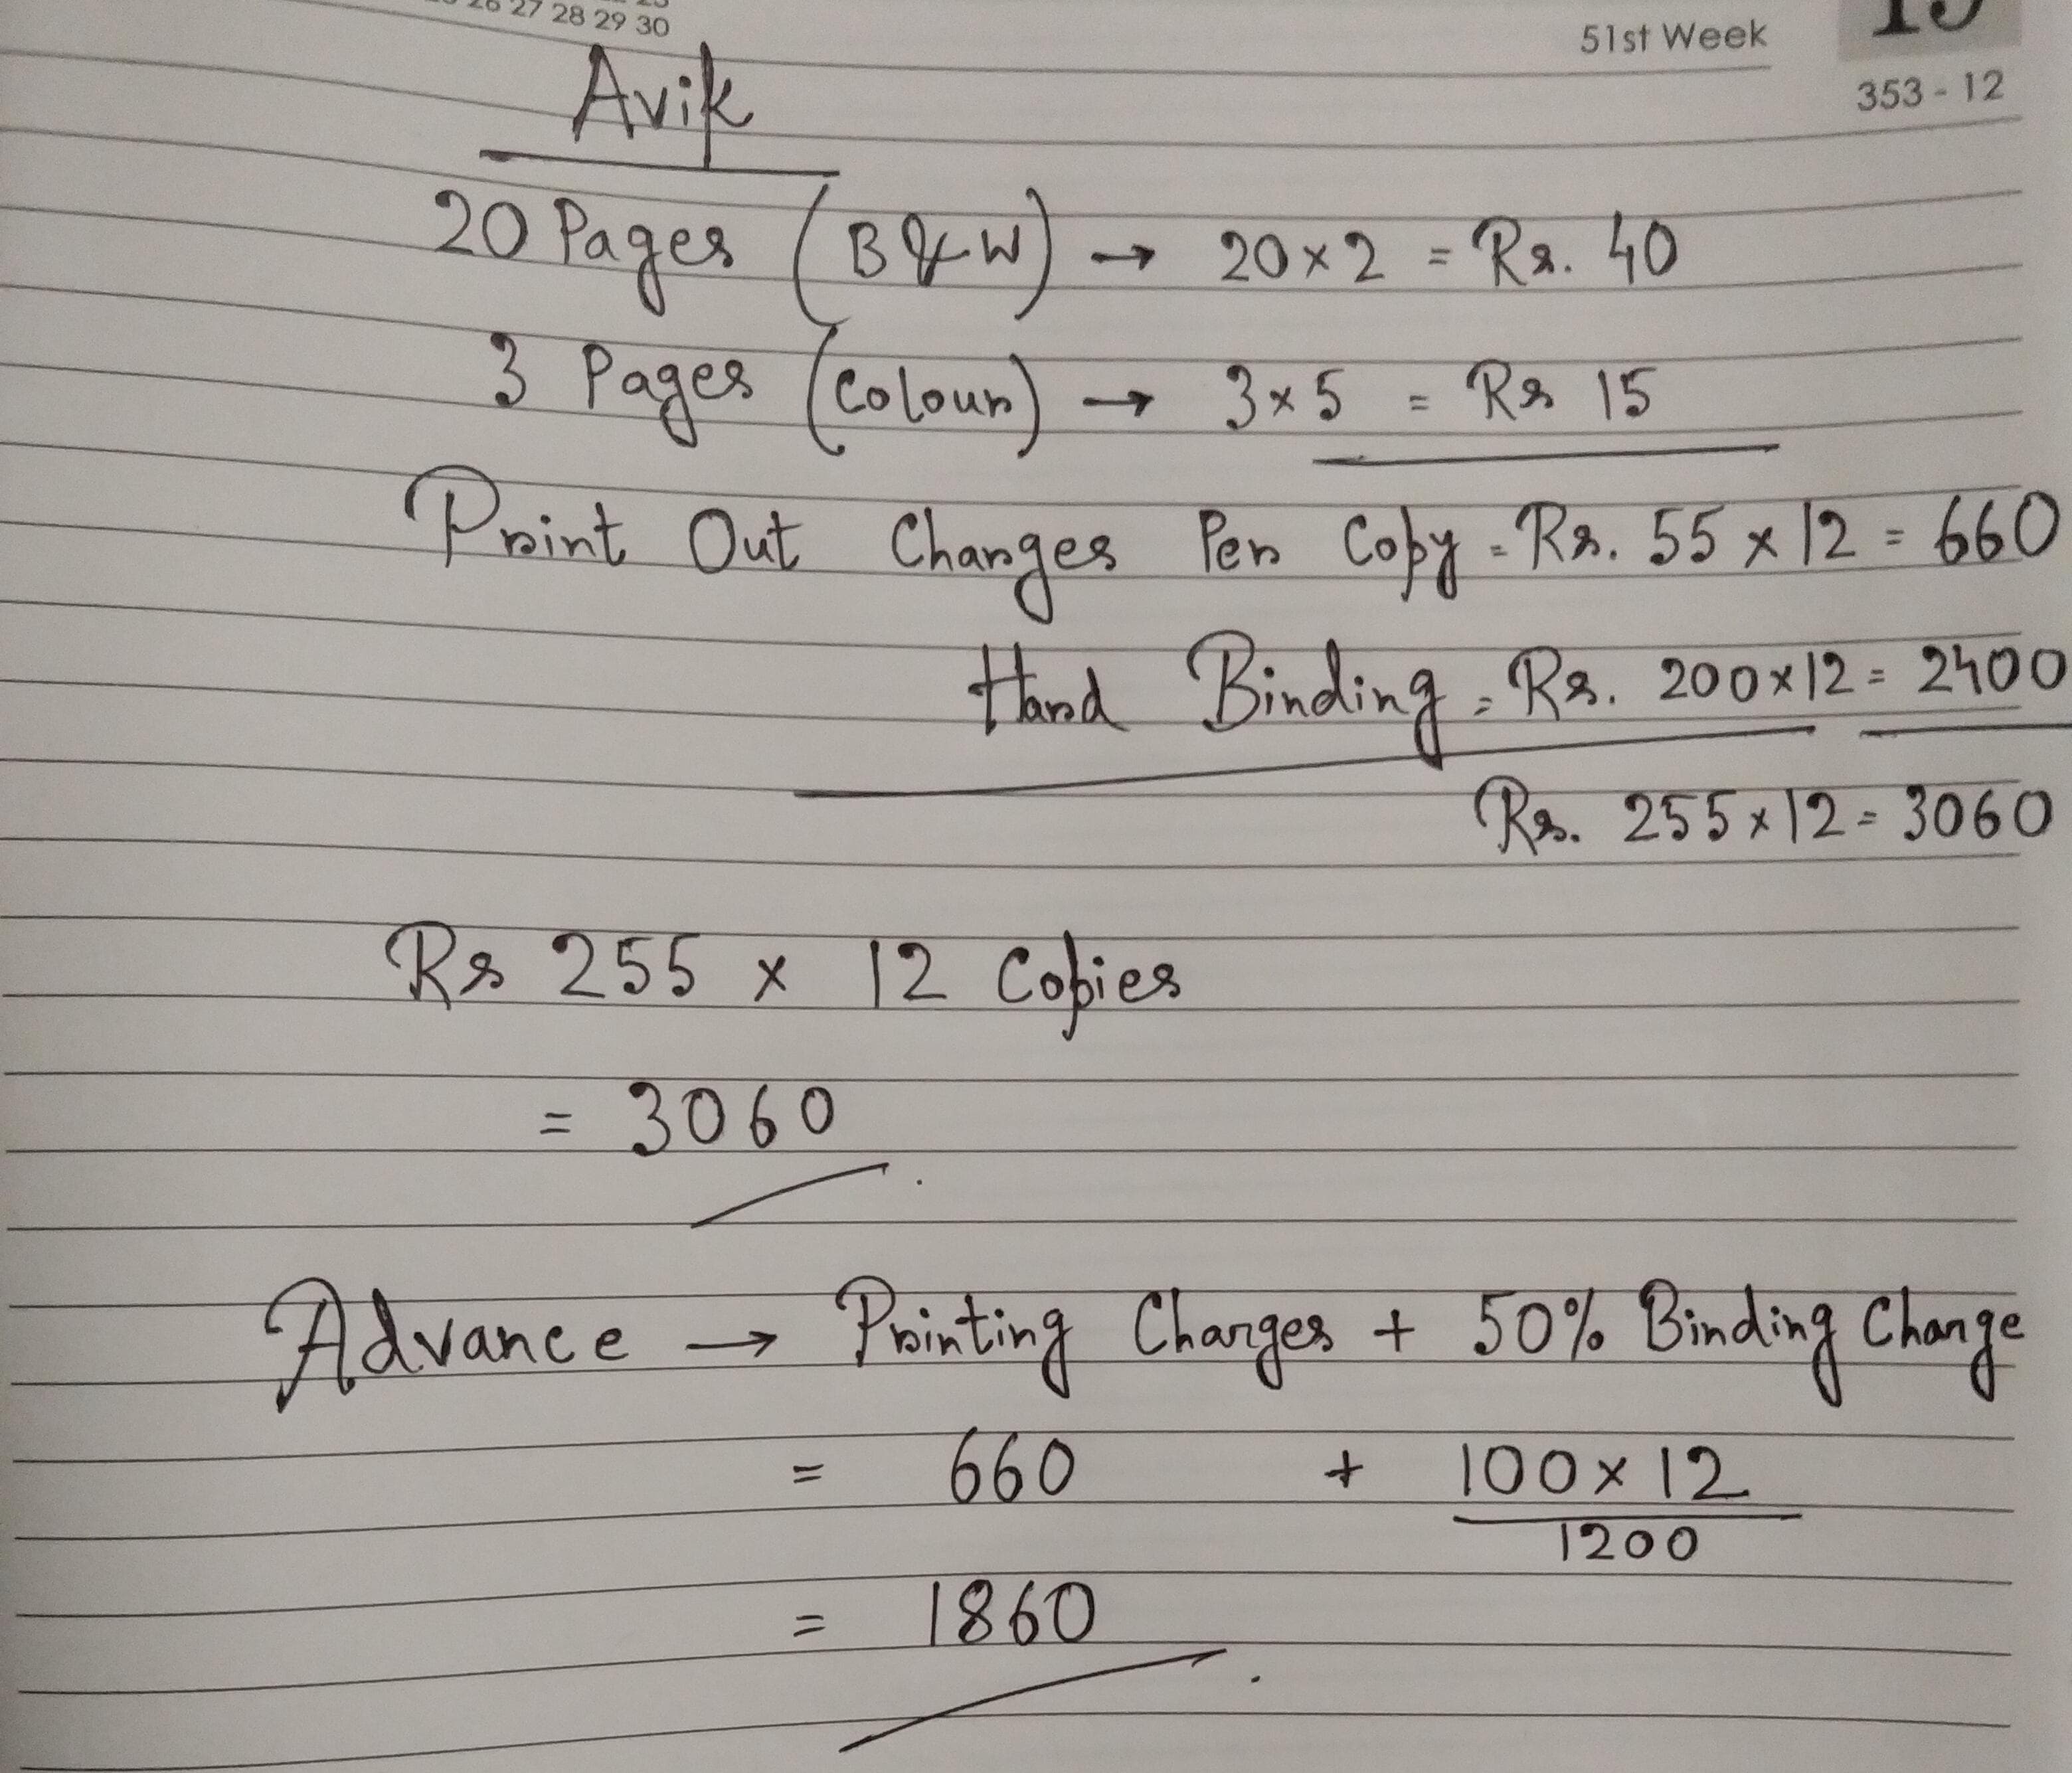 26 27 28 29 30
51st Week
353 - 12
Avik
20 Pages (B&W) → 20 × 2 = Rs. 40
3 Pages (Colour) → 3 × 5 = Rs 15
Print Out Charges Per Copy = Rs. 55 × 12 = 660
Hard Binding = Rs. 200 × 12 = 2400
Rs. 255 × 12 = 3060
Rs 255 × 12 Copies
= 3060
Advance → Printing Charges + 50% Binding Charge
= 660 + 100 × 12
1200
= 1860